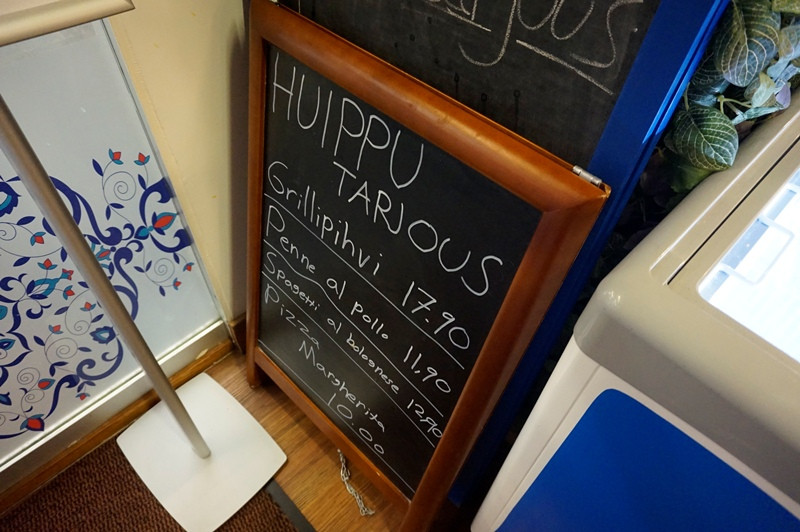 HUIPPU
TARJOUS
Grillipihvi 17.90
Penne al pollo 11,90
Spagetti al bolognese 12,90
Pizza
Margherita
10.00